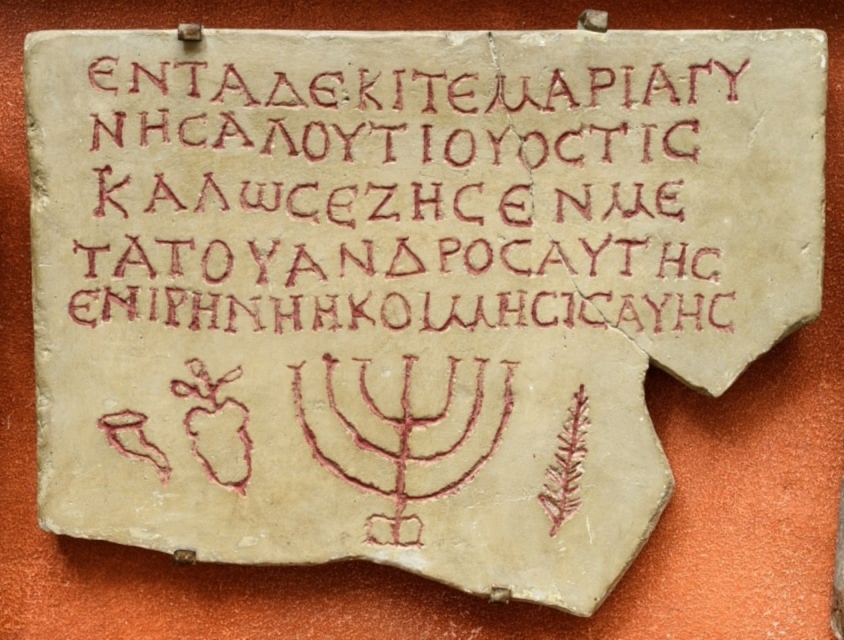 ΕΝΤΑΔΕΚΙΤΕΜΑΡΙΑΓΥ
ΝΗϹΑΛΟΥΤΙΟΥΟϹΤΙϹ
ΚΑΛωϹΕΖΗϹΕΝΜΕ
ΤΑΤΟΥΑΝΔΡΟϹΑΥΤΗϹ
ΕΝΙΡΗΝΗΗΚΟΙΜΗϹΙϹΑΥΗϹ